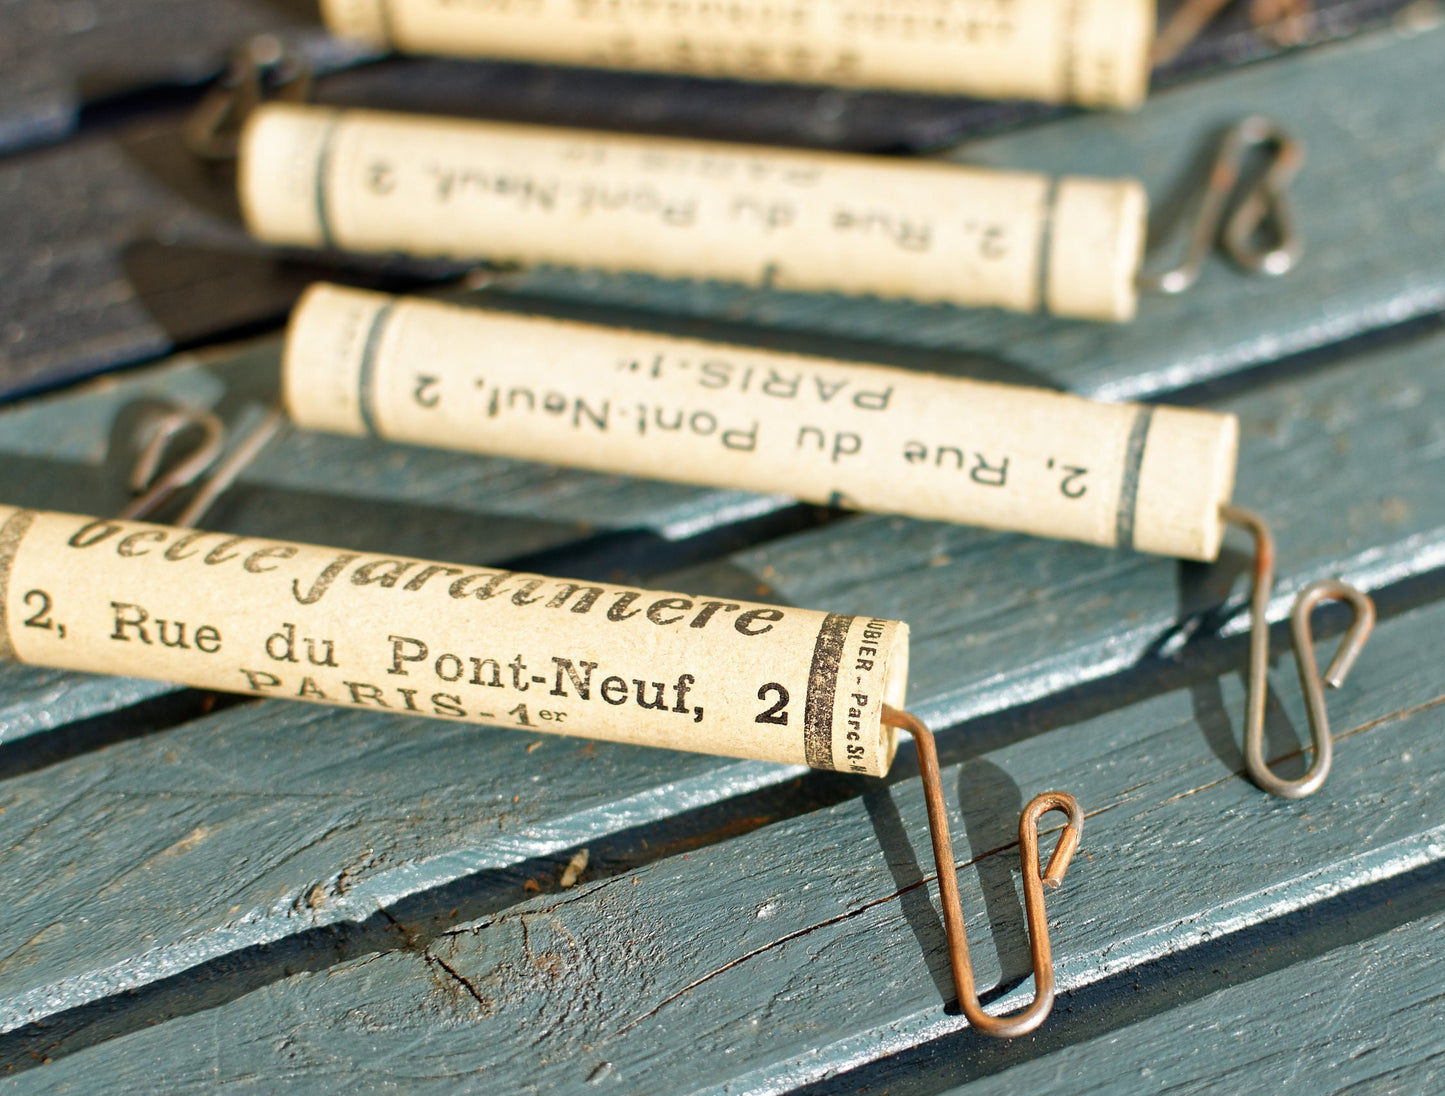 PARIS-1er
2, Rue du Pont-Neuf, 2
PARIS-1er
2, Rue du Pont-Neuf, 2
Belle Jardinière
2, Rue du Pont-Neuf, 2
PARIS-1er
UBIER - Parc St-M